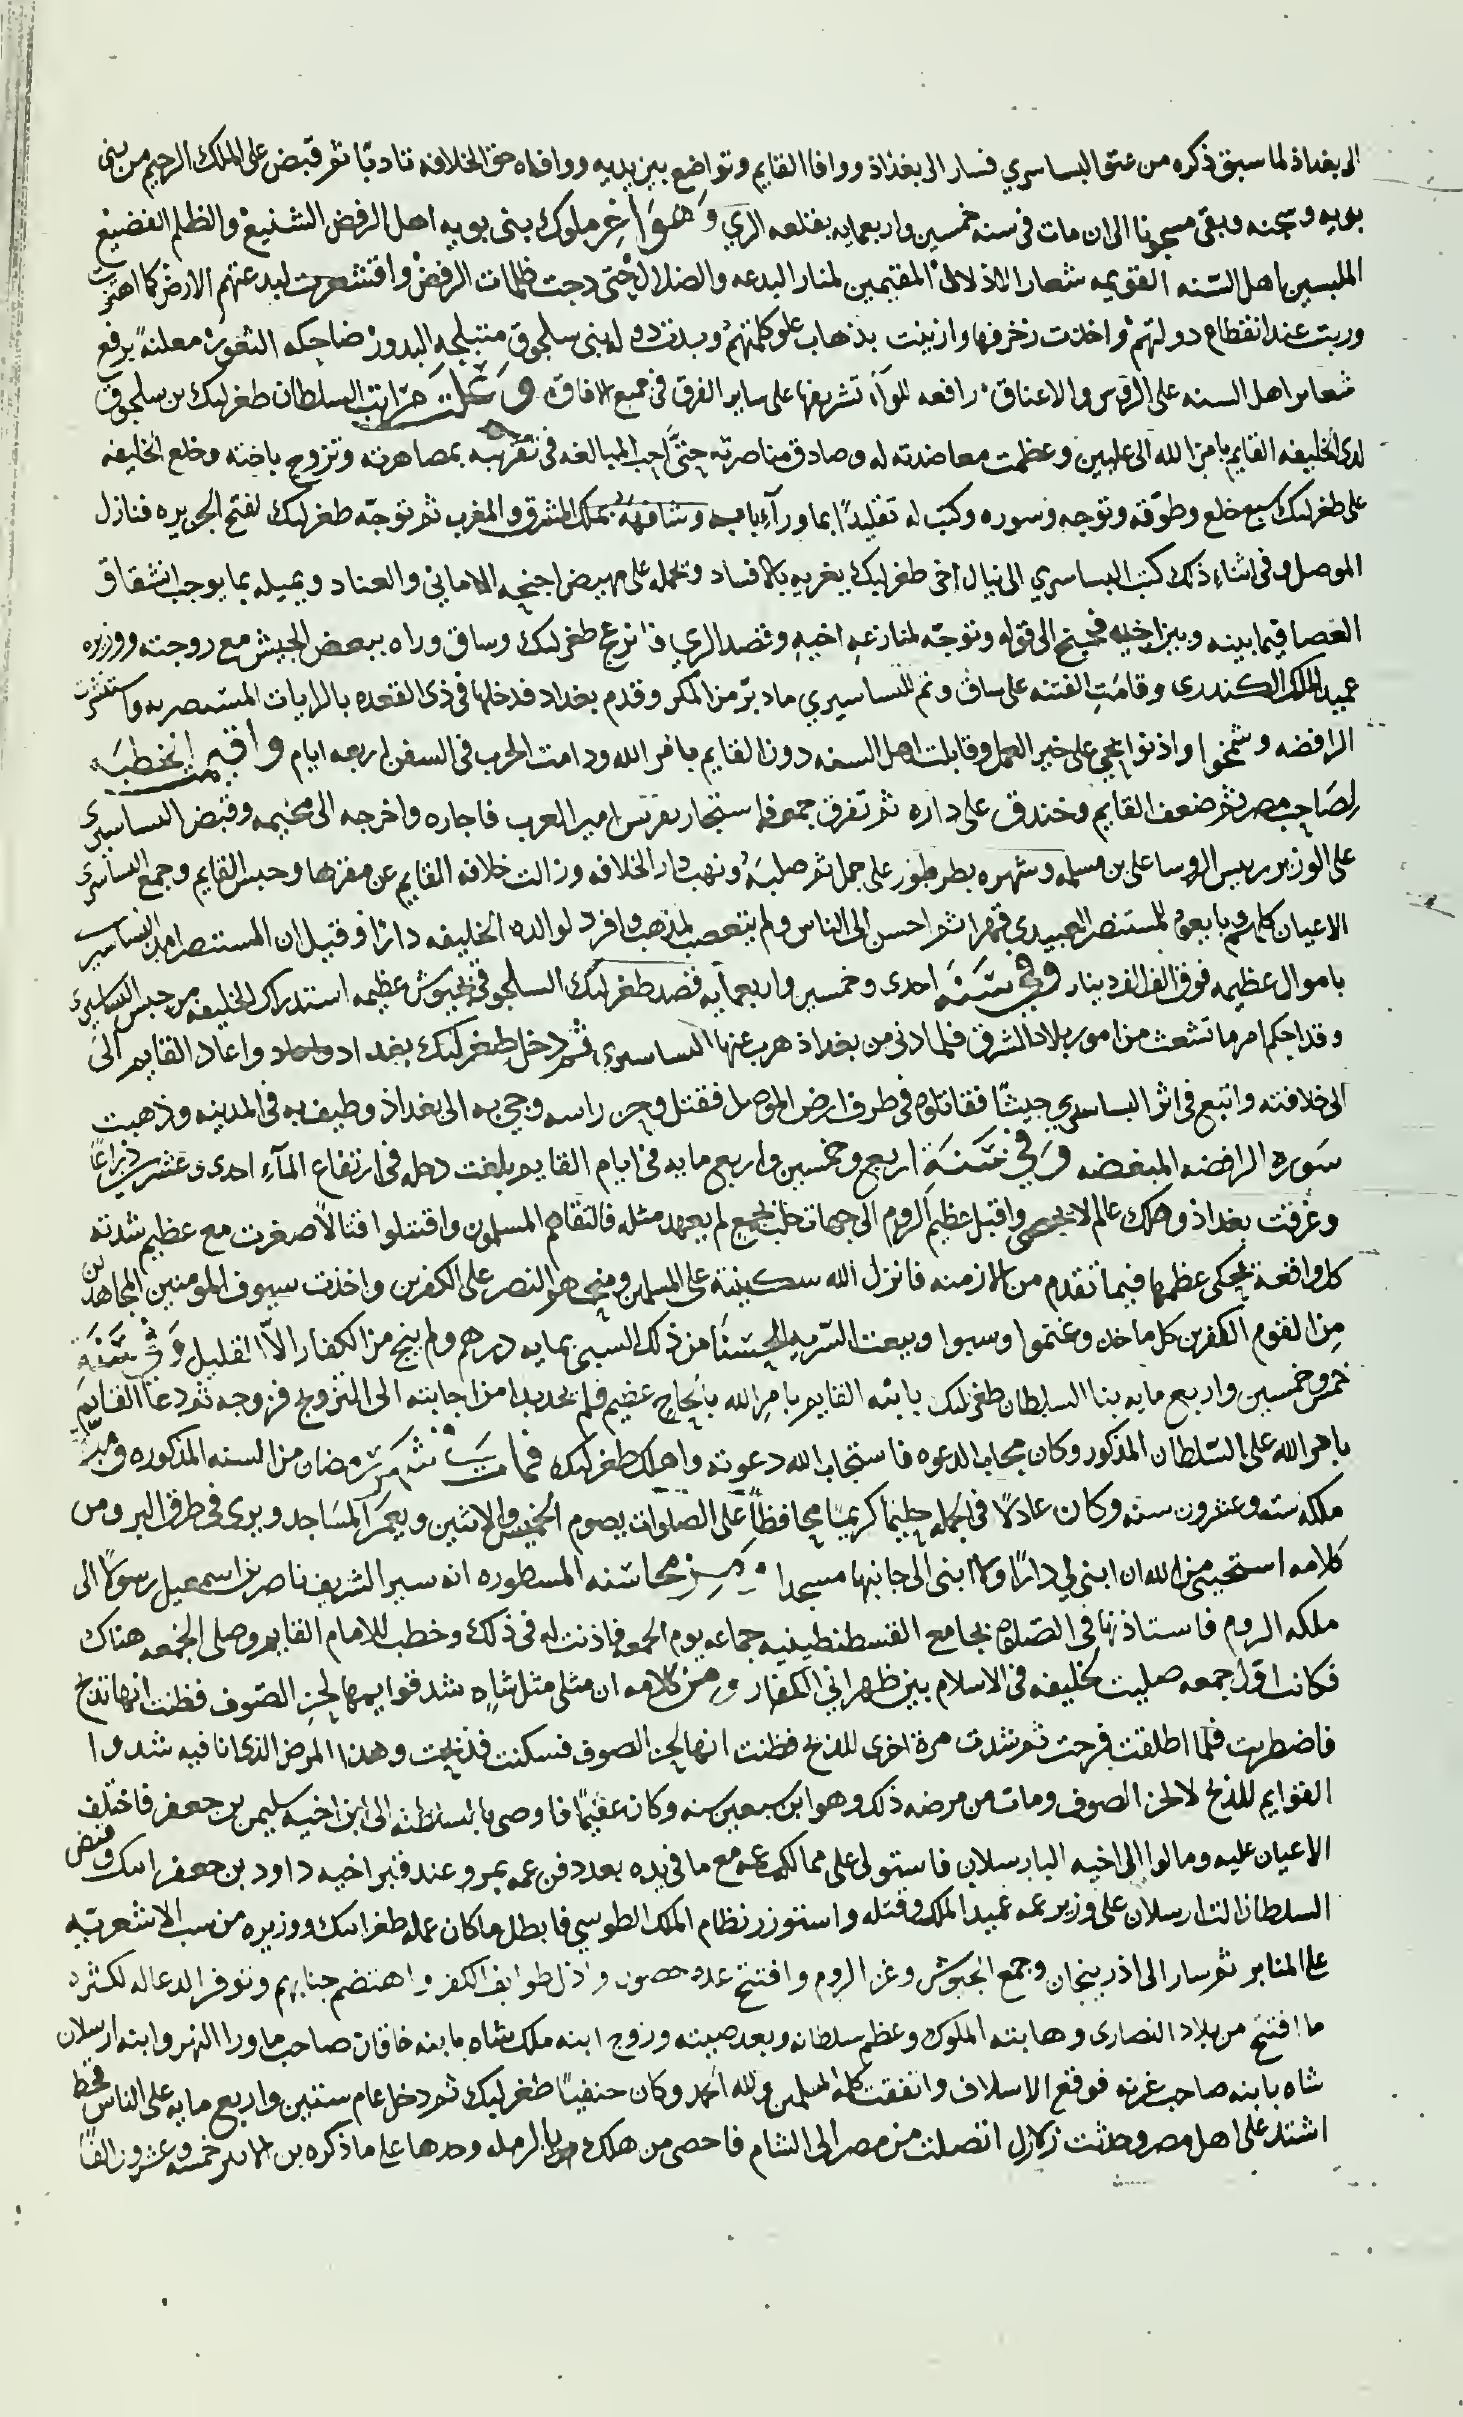 الى بغداذ لما سبق ذكره من عتو البساسري فسار الى بغذاذ ووافا القايم وتواضع بين يديه ووافاه حق الخلافه تادبًا ثم قبض على الملك الرحيم من بنى
بويه وسجنه وبقى مسجونا الى ان مات فى سنه خمسين واربعمايه بقلعه الري وَهُوَ اخِر ملوك بنى بويه اهل الرفض الشنيع والظلم الفضيع
الملبسين اهل السّنه القويمه شعار الاذلال المقيمين لمنار البدعه والضلال حتى دجت ظلمات الرفض واقشعرت لبدعتهم الارض كما اهتزت
وربت عند انقطاع دولتهم واخذت زخرفها وازينت بذهاب علو كلمتهم وبدت دوله بنى سلجوق متبلجه البدور ضاحكه الثغور معلنهً برفع
شعاير اهل السنه على الروس والاعناق رافعه للوآء تشريفها على ساير الفرق فى جميع الافاق وَعَلَت مَرَاتِب السلطان طغرلبك بن سلجوق
لدى الخليفه القايم بامر الله الى عليين وعظمت معاضدته له وصادق مناصرته حتَّى احب المبالغه فى تقربه بمصاهرته وتزوج باخته وخلع الخليفه
على طغرلبك سبع خلع وطوّقه وتوجه وسوره وكتب له تقليدًا بما ورآء بابه وشافهه بملك المشرق والمغرب ثم توجّه طغرلبك لفتح الجزيره فنازل
الموصل وفى اثناء ذلك كتب البساسري الى نيال اخى طغرلبك يغريه بالافساد وتحمله على مهيض اجنحه الاماني والعناد ويميله بما يوجب انشقاق
العصا فيما بينه وبين اخيه فجنح الى قوله وتوجّه لمنازعه اخيه وقصد الري فانزعج طغرلبك وساق وراه ببعض الجيش مع زوجته ووزيره
عميد الملك الكندرى وقامت الفتنه على ساق وتم للبساسيري ما دبّر من المكر وقدم بغداد فدخلها فى ذى القعده بالرايات المستنصريه واستبشرت
الرافضه وشمخوا واذنوا بحي على خير العمل وقاتلت اهل السنه دون القايم بامر الله ودامت الحرب فى السفن اربعه ايام وأقيمت الخطبَه
لصاحب مصر ثم ضعف القايم وخندق على داره ثم تفرق جمعه فاستجار بقريش امير العرب فاجاره واخرجه الى مخيمه وقبض البساسيرى
على الوزير رييس الروسا على بن مسلمه وشهره بطرطور على جمل ثم صلبَه ونهب دار الخلافه وزالت خلافه القايم عن مقرها وحبس القايم وجمع البساسرى
الاعيان كلهم وبايعوا للمستنصر العبيدى قهرا ثم احسن الى الناس ولم يتعصب لمذهب وافرد لوالده الخليفه دارًا وقيل ان المستنصر امد البساسيرى
باموال عظيمه فوق الف الف دينار وَفِى سَنَه احدى وخمسين واربعمايه قصد طغرلبك السلجوقى بجيوش عظيمه استدراك الخليفه من حبس البساسيرى
وقد احكم امر ما تشعث من امور بلاد الشرق فلما دنى من بغداذ هرب عنها البساسيرى ثم دخل طغرلبك بغداد واعاد القايم الى
الى خلافته واتبع فى اثر البساسري جيشًا فقاتلوه فى طرف ارض الموصل فقتل وحز راسه وجي به الى بغداذ وطيف به فى المدينه وذهبت
سَوره الرافضه المبغضه وَفِى سَنَةِ اربع وخمسين واربع مايه فى ايام القايم بلغت دجله فى ارتفاع المآء احدى وعشرين ذراعًا
وغرقت بغداذ وهلك عالم لا يحصى واقبل عظيم الروم الى جهات حلب بجمع لم يعهد مثله فالتقاهم المسلمون واقتتلوا قتالًا صغرت مع عظيم شدته
كل واقعة يحكى عظمها فيما تقدم من الازمنه فانزل الله سكينته على المسلمين ومنحهم النصر على الكفرين واخذت سيوف المومنين المجاهدين
مِن القوم الكفرين كل ماخذ وغنموا وسبوا وبيعت السّريه الحَسنَا من ذلك السبى بمايه درهم ولم ينج من الكفار الّا القليل وَفى سَنَهِ
خمس وخمسين واربع مايه بنا السلطان طغرلبك بابنه القايم بامرِ الله بالحاحٍ عظيم فلم يجد بدا من اجابته الى التزوج فزوجه ثم دعا القايم
بامر الله على السّلطان المذكور وكان مجاب الدعوه فاستجاب الله دعوته واهلك طغرلبك فمات فى شهر رمضان من السنه المذكوره ومدّة
ملكه سته وعشرون سنه وكان عادلًا فى الجمله حليمًا كريمًا محافظًا على الصلوات يصوم الخميس والاثنين ويعمر المسَاجد ويرى فى طرق البر ومن
كلامه استحيى من الله ان ابنى لي دارًا ولا ابنى الى جانبها مسجدا وَمِن محاسَنه المسطوره انه سير الشريف ناصر بن اسمعيل رسولًا الى
ملكه الروم فاستاذنها فى الصّلوه بجامع القسطنطينيه جماعه يوم الجمعه فاذنت له فى ذلك وخطب للامام القايم وصلى الجمعه هناك
فكانت اوّل جمعه صليت لخليفه فى الاسلام بين ظهراني الكفار وَمِن كلامه ان مثلى مثل شاهٍ شد قوايمها لجز الصّوف فظنت انها تذبح
فاضطربت فلما اطلقت فرحت ثم شدت مرة اخرى للذبح فظنت انها لجز الصوف فسكنت فذبحت وهذا المرض الذى انا فيه شدوا
القوايم للذبح لا لجز الصوف ومات من مرضه ذلك وهو ابن سبعين سنه وكان عقيمًا فاوصى بالسلطنه الى ابن اخيه سليمن بن جعفر فاختلف
الاعيان عليه ومالوا الى اخيه البارسلان فاستولى على ممالك عمه مع ما فى يده بعد دفن عمه بمرو عند قبر اخيه داود بن جعفر وقبض
السلطان الب ارسلان على وزير عمه عميد الملك وقتله واستوزر نظام الملك الطوسي فابطل ما كان عمله طغرلبك ووزيره من سب الاشعريه
على المنابر ثم سار الى اذربيجان وجمع الجيوش وغزا الروم وافتتح عده حصون واذل طوايف الكفر واهتضم جنابهم وتوفر الدعا له لكثره
ما افتتح من بلاد النصارى وهابته الملوك وعظم سلطانه وبعد صيته وزوج ابنه ملك شاه بابنه خاقان صاحب ماورا النهر وابنه ارسلان
شاه بابنه صاحب غزنه فوقع الاسلاف واتفقت كلمه المسلمين ولله الحمد وكان حنفيًا طغرلبك ثم دخل عام ستين واربع مايه على الناس قحط
اشتد على اهل مصر وحدثت زلازل اتصلت من مصر الى الشام فاحصى من هلك بالرمله وحدها على ما ذكره بن الاثير خمسه وعشرون الفًا